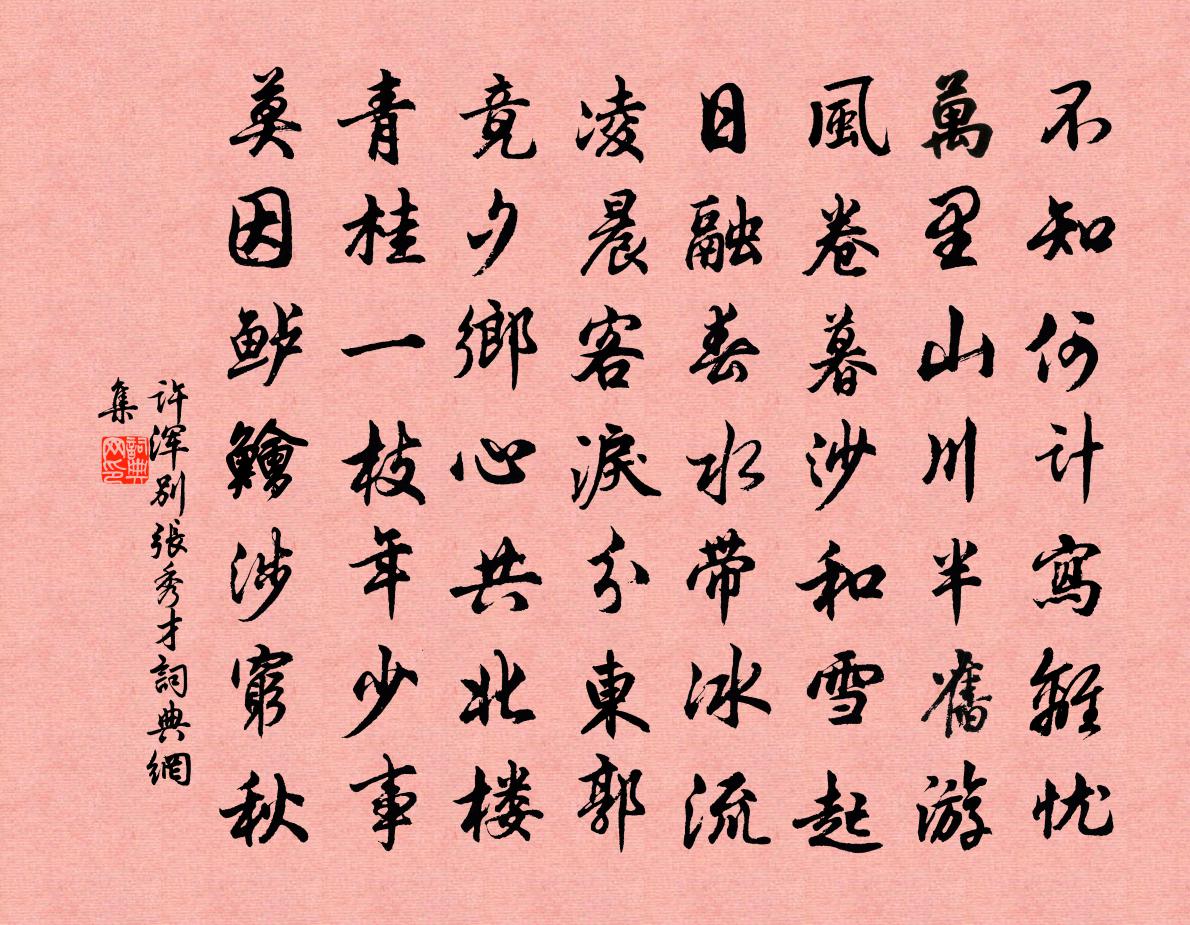 不知何計寫離忧
萬里山川半舊游
風卷暮沙和雪起
日融春水帶冰流
凌晨客淚分東郭
竟夕鄉心共北楼
青桂一枝年少事
莫因鲈鱠涉窮秋
許浑别張秀才詞典網
集
詞典网印